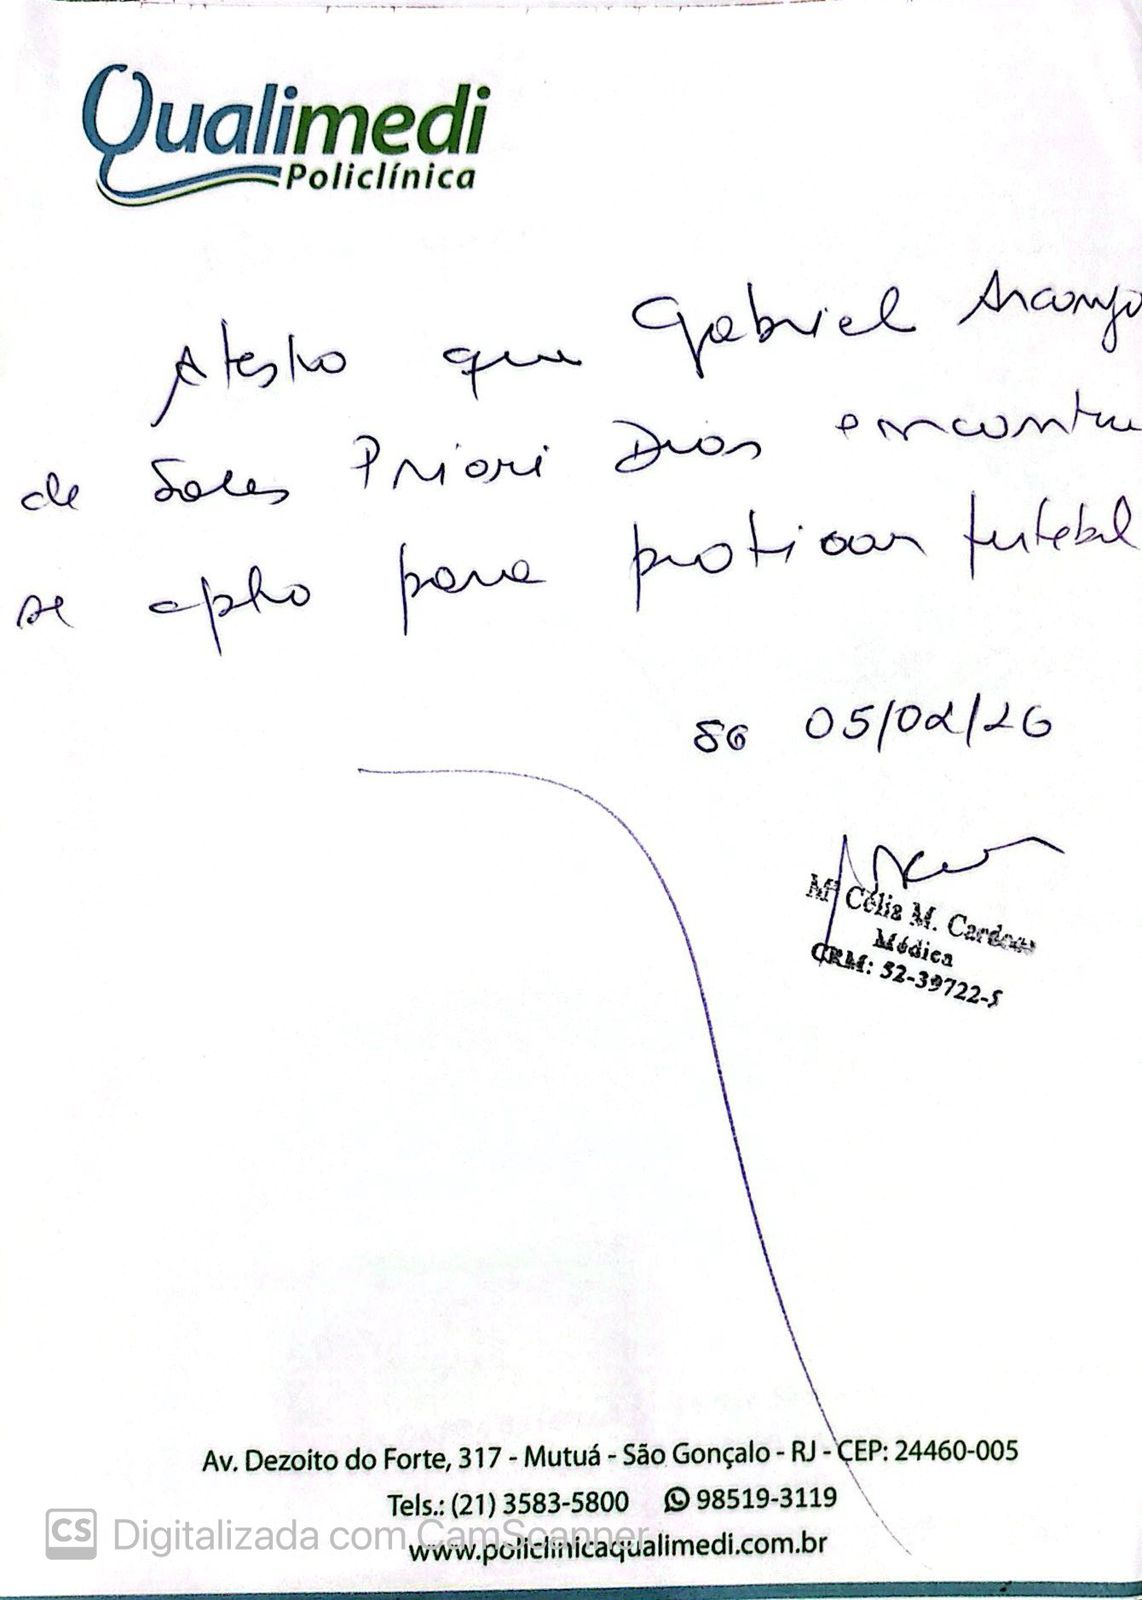 Qualimedi
Policlínica
Atesto que Gabriel Arcanjo
de Sales Priori Dias encontra
se apto para praticar futebol
SG 05/02/26
Mª Célia M. Cardoso
Médica
CRM: 52-39722-5
Av. Dezoito do Forte, 317 - Mutuá - São Gonçalo - RJ - CEP: 24460-005
Tels.: (21) 3583-5800 98519-3119
www.policlinicaqualimedi.com.br
CS Digitalizada com CamScanner